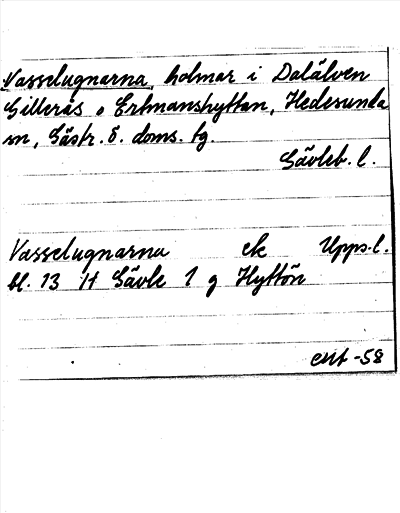 Vasselugnarna, holmar i Dalälven
Gilleräs o Ertmanshyttan, Hedesunda
sn, Gästr. ö. doms. tg.
Gävleb. l.
Vasselugnarna ek Upps. l.
bl. 13 H Gävle 1 g Hyttön
-58